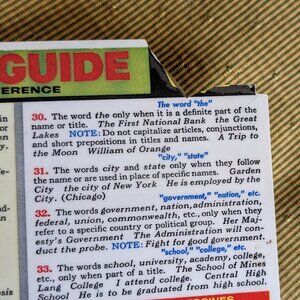 GUIDE
FERENCE
The word "the"
30. The word the only when it is a definite part of the
name or title. The First National Bank the Great
Lakes NOTE: Do not capitalize articles, conjunctions,
and short prepositions in titles and names. A Trip to
the Moon William of Orange
"city," "state"
31. The words city and state only when they follow
the name or are used in place of specific names. Garden
City the city of New York He is employed by the
City. (Chicago)
"government," "nation," etc.
32. The words government, nation, administration,
federal, union, commonwealth, etc., only when they
refer to a specific country or political group. Her Maj-
esty's Government The Administration will con-
duct the probe. NOTE: Fight for good government.
"school," "college," etc.
33. The words school, university, academy, college,
etc., only when part of a title. The School of Mines
Lang College I attend college. Central High
School He is to be graduated from high school.